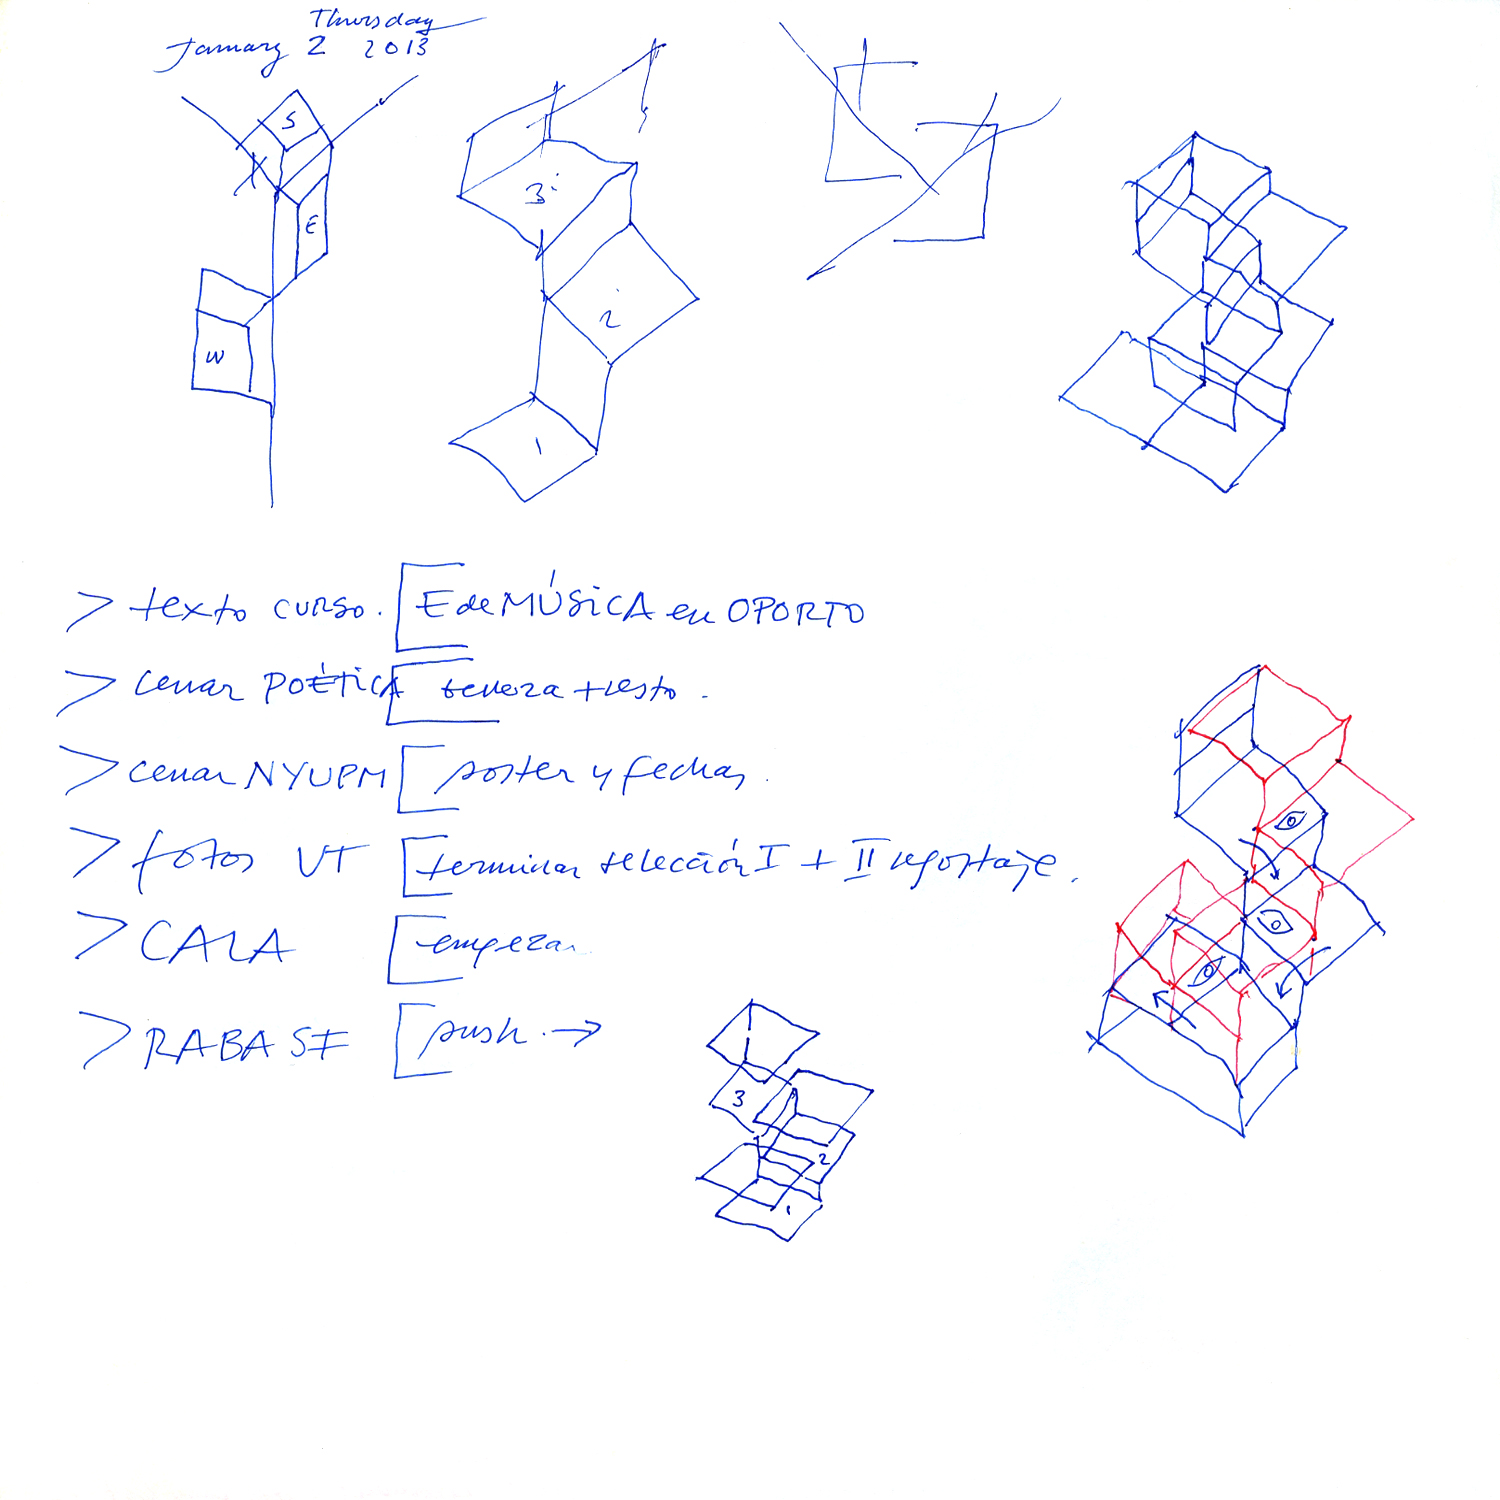 Thursday
January 2 2013
S
E
W
3
2
1
> texto curso. [ E de MÚSICA en OPORTO
> cerrar POÉTICA [ + resto.
> cerrar NYUPM [ poster y fechas.
> fotos VT [ terminar selección I + II reportaje.
> CALA [ empezar
> RABASF [ push. →
3
2
1